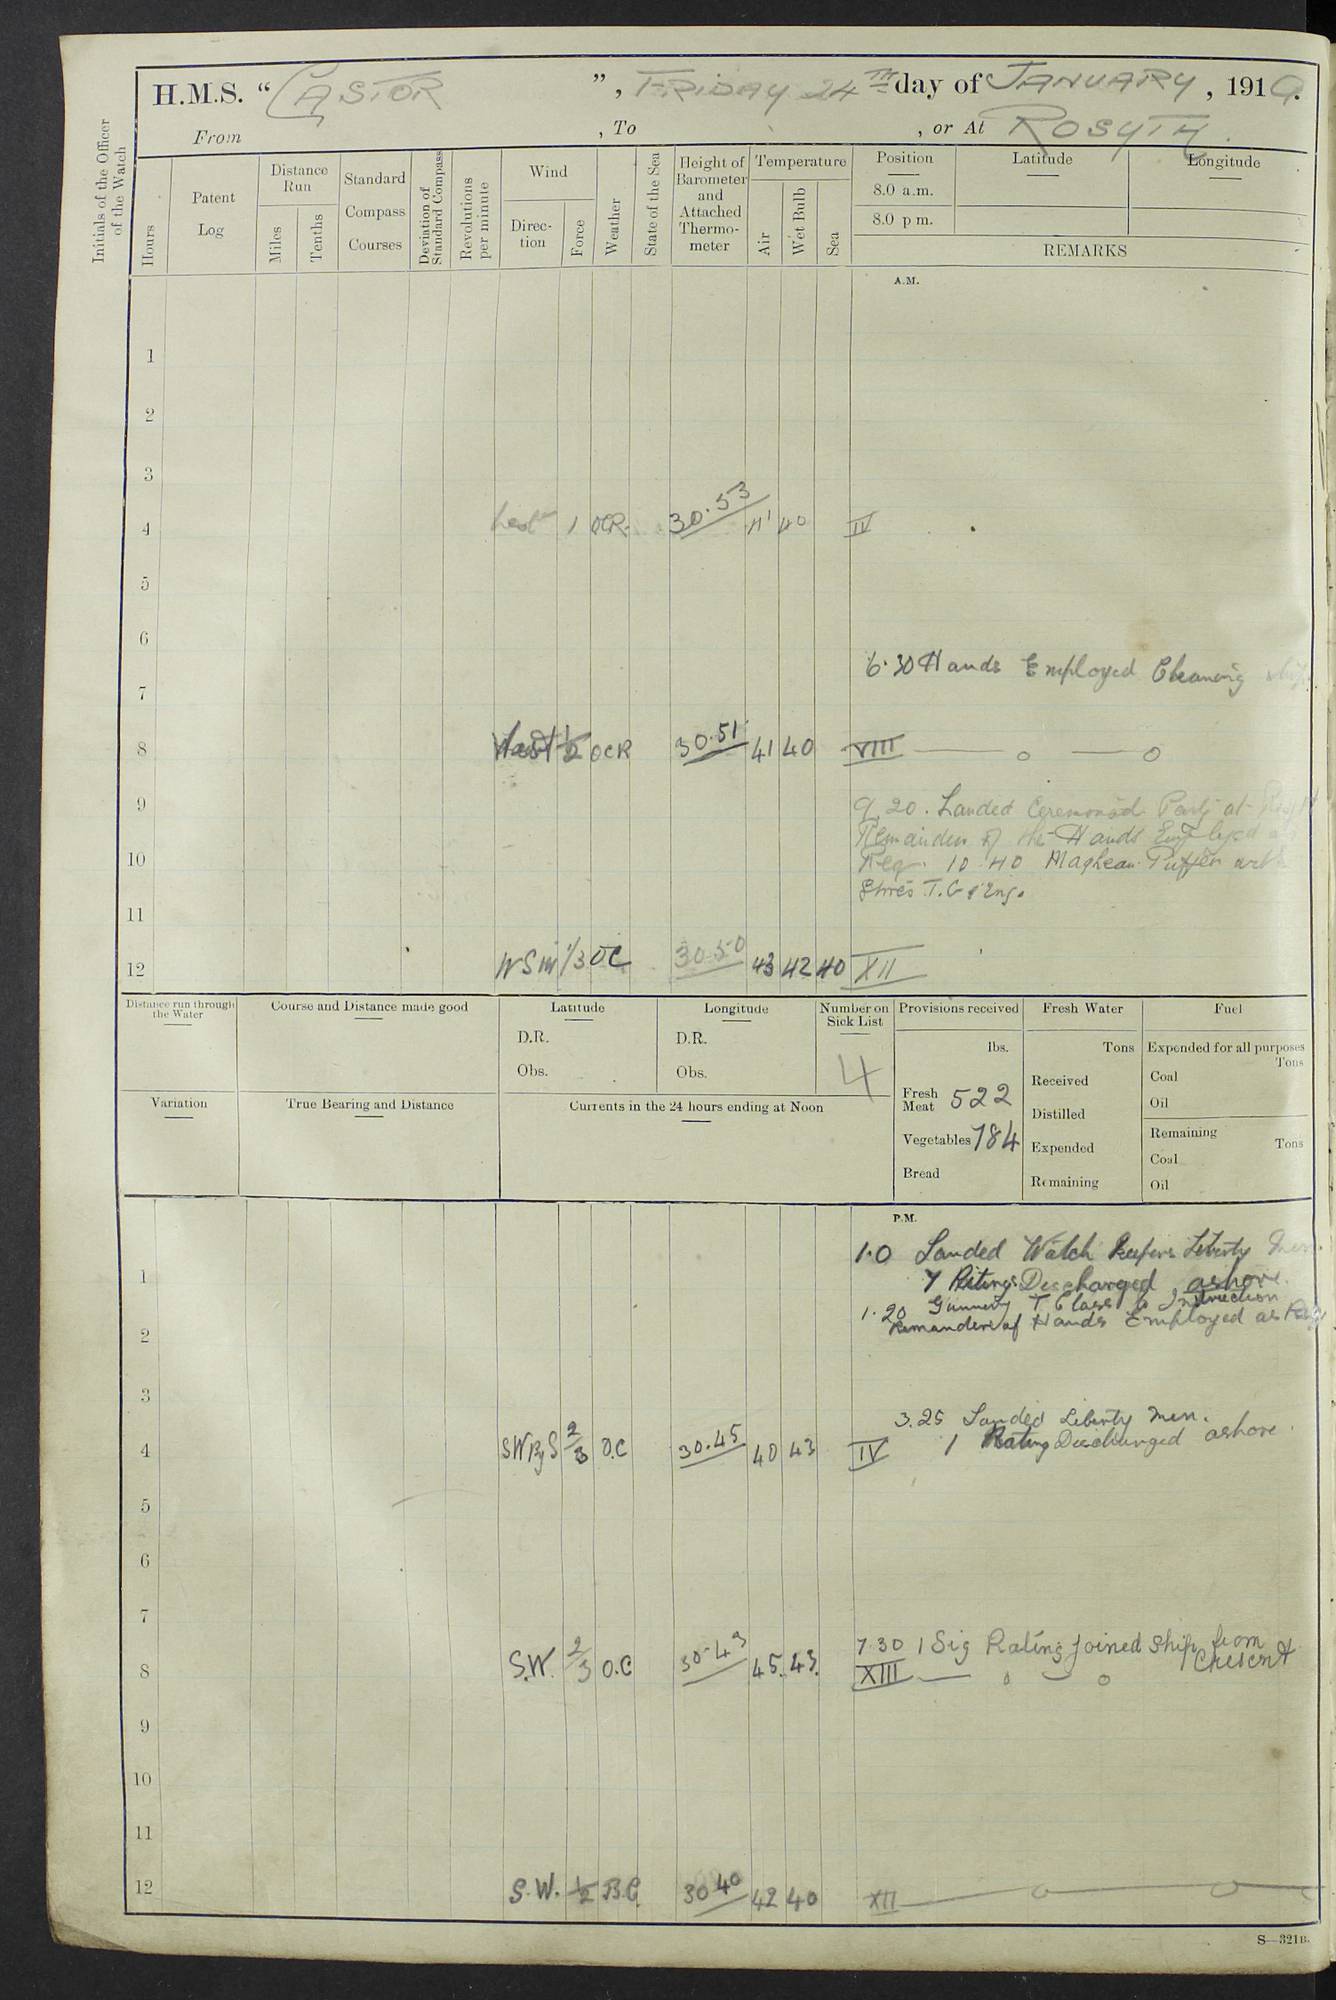 H.M.S. "CASTOR", FRIDAY 24TH day of JANUARY, 1919.
From , To , or At ROSYTH.
Initials of the Officer of the Watch
Hours
Patent Log
Distance Run
Miles
Tenths
Standard Compass Courses
Deviation of Standard Compass
Revolutions per minute
Wind
Direction
Force
Weather
State of the Sea
Height of Barometer and Attached Thermometer
Temperature
Air
Wet Bulb
Sea
Position
8.0 a.m.
8.0 p m.
Latitude
Longitude
REMARKS
A.M.
1
2
3
4 West 1 OCR 30.53 41 40 IV
5
6
6.30 Hands Employed Cleaning ship
7
8 West 1/2 OCR 30.51 41 40 VIII — o — o
9 9.20. Landed Ceremonial Party at
Remainder of the Hands Employed
10 Req. 10.40 Puffer
stores T. G & Eng.
11
12 WSW 1/3 OC 30.50 43 42 40 XII
Distance run through the Water
Course and Distance made good
Latitude
D.R.
Obs.
Longitude
D.R.
Obs.
Number on Sick List
4
Provisions received
lbs.
Fresh Meat 522
Vegetables 784
Bread
Fresh Water
Tons
Received
Distilled
Expended
Remaining
Fuel
Expended for all purposes
Tons
Coal
Oil
Remaining
Tons
Coal
Oil
Variation
True Bearing and Distance
Currents in the 24 hours ending at Noon
P.M.
1.0 Landed Watch Keepers Liberty Men.
1 7 Ratings Discharged ashore.
1.20 Gunnery T Class to Instruction
2 Remainders of Hands Employed as Req
3
3.25 Landed Liberty Men.
4 SW By S 2/3 O.C 30.45 40 43 IV 1 Rating Discharged ashore.
5
6
7
7.30 1 Sig Rating joined Ship from Crescent
8 S.W. 2/3 O.C 30.43 45. 43. XIII — o — o
9
10
11
12 S.W. 1/2 B.C. 30 40 42 40 XII
S—321B.